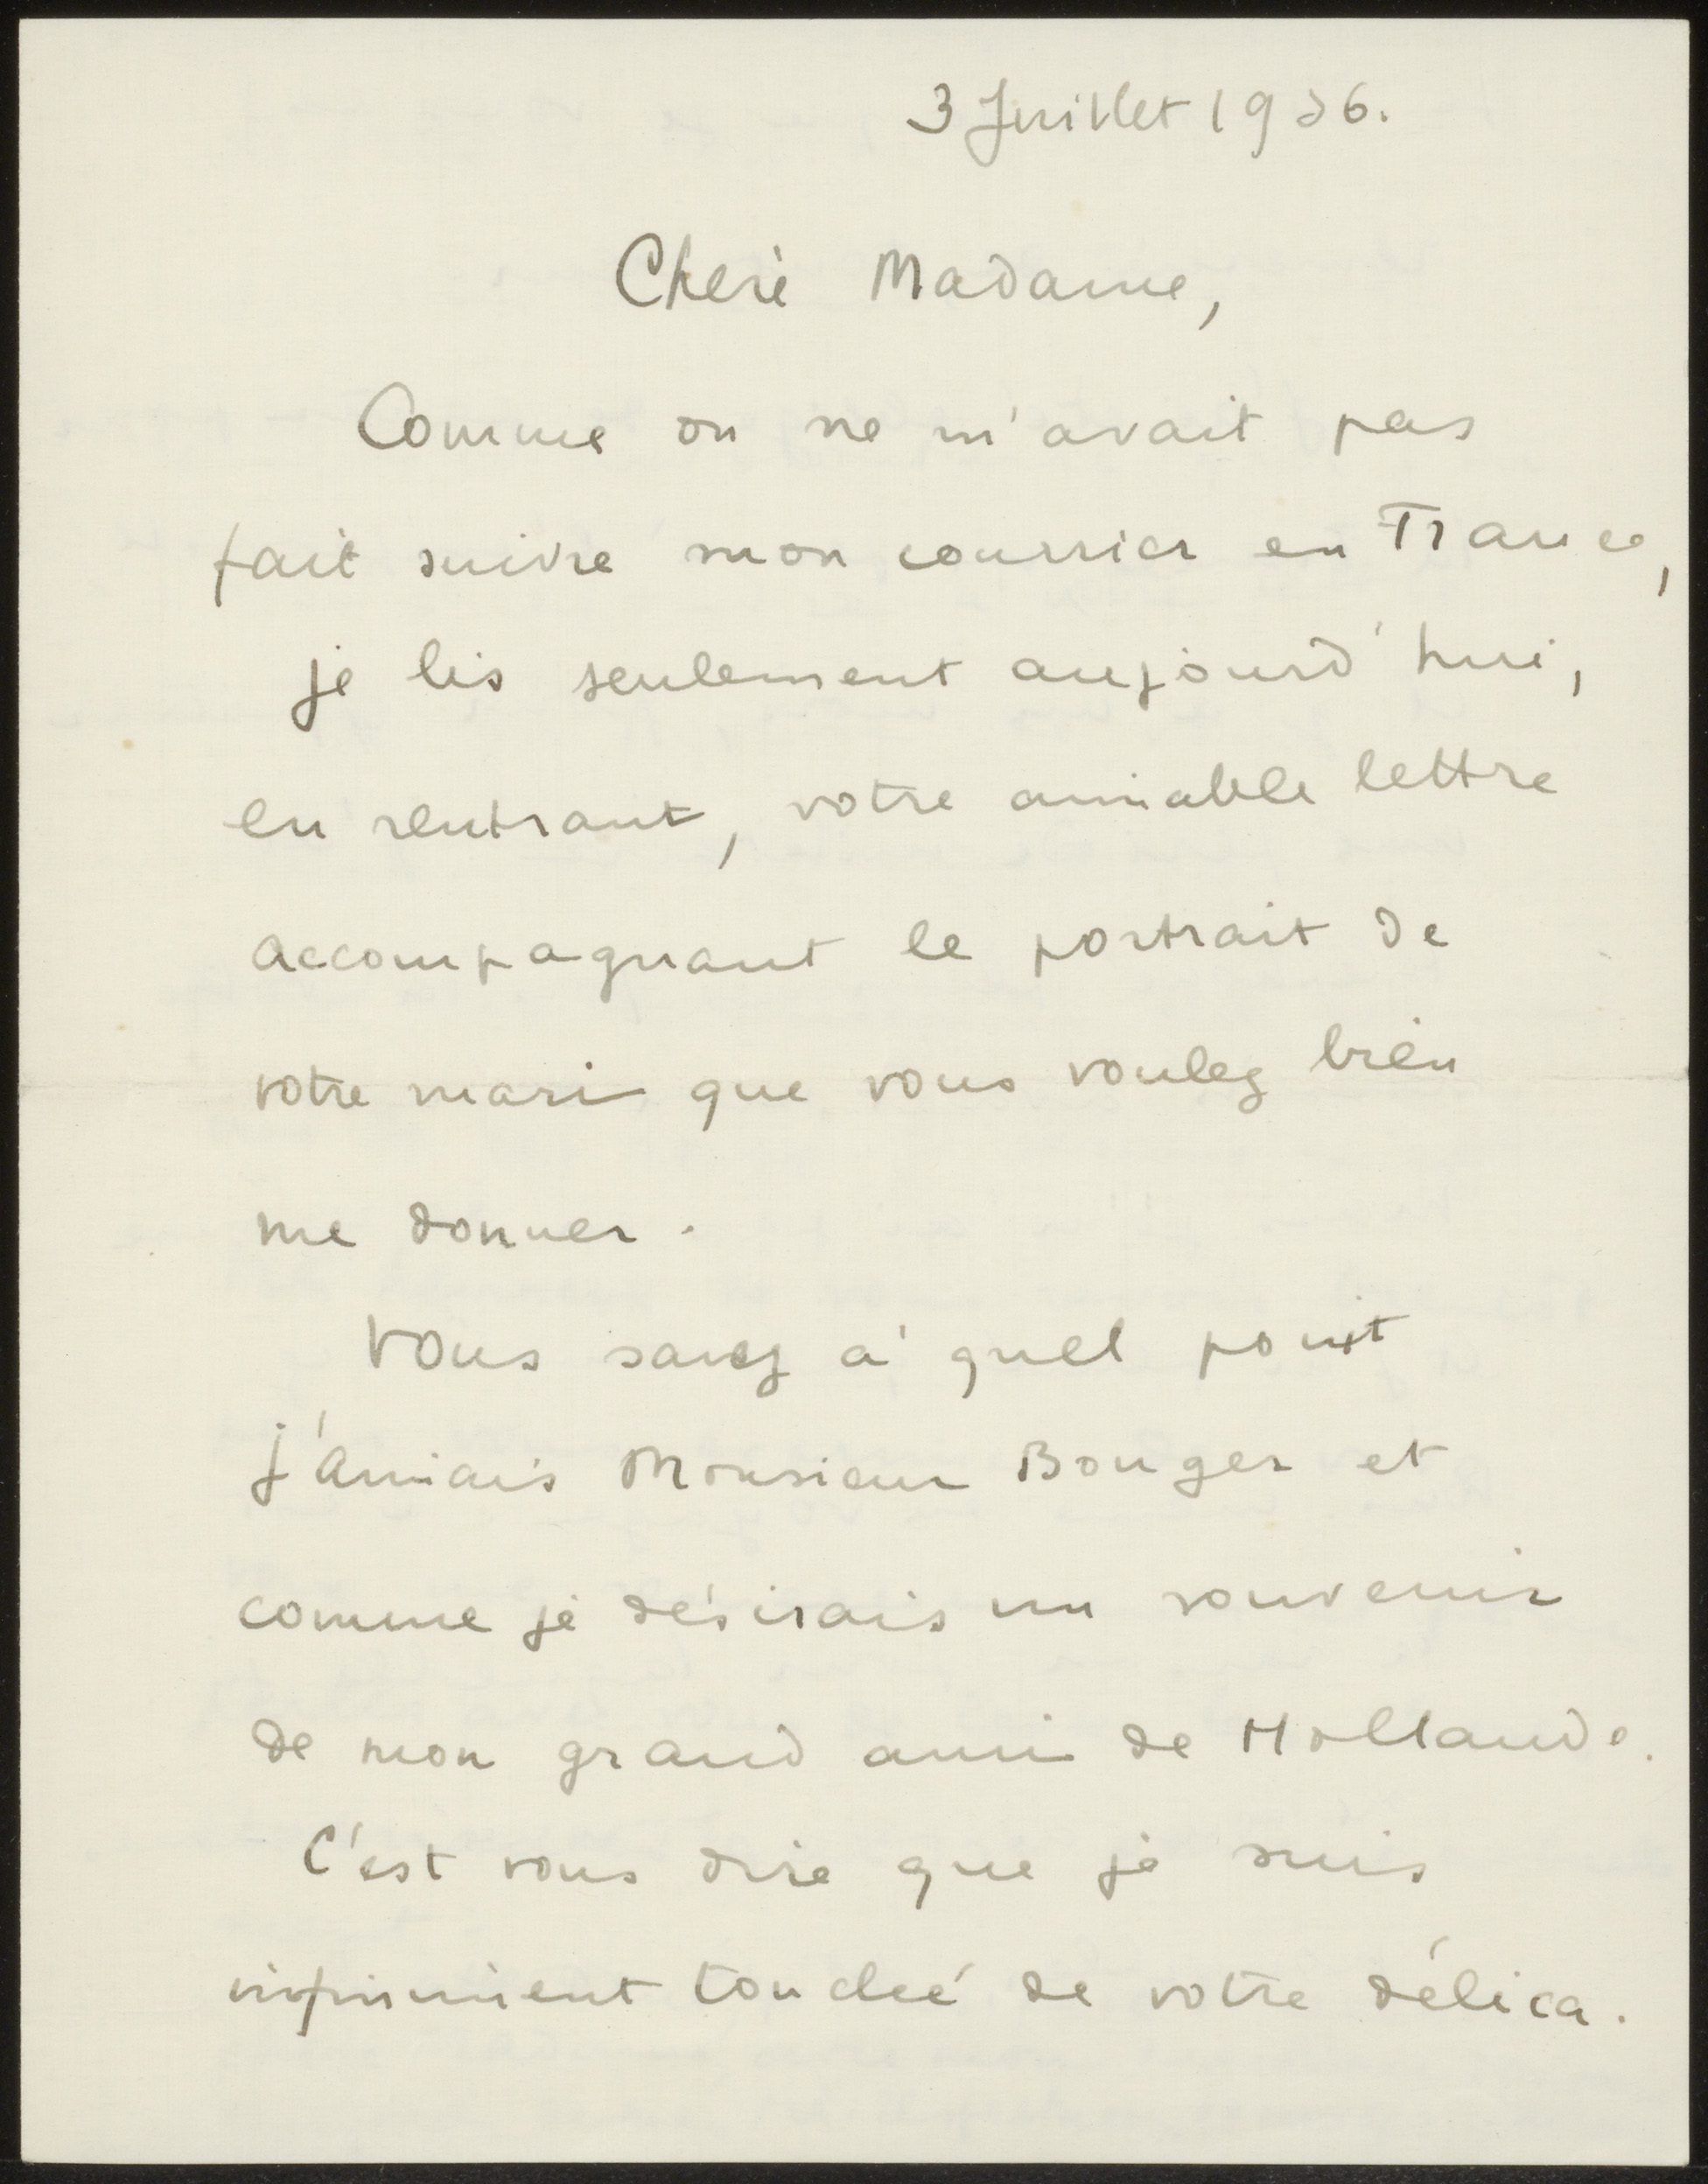 3 Juillet 1936.
Chère Madame,
Comme on ne m'avait pas
fait suivre mon courrier en France,
je lis seulement aujourd'hui,
en rentrant, votre aimable lettre
accompagnant le portrait de
votre mari que vous voulez bien
me donner.
Vous savez à quel point
j'aimais Monsieur Bonger et
comme je désirais un souvenir
de mon grand ami de Hollande.
C'est vous dire que je suis
infiniment touchée de votre délica.